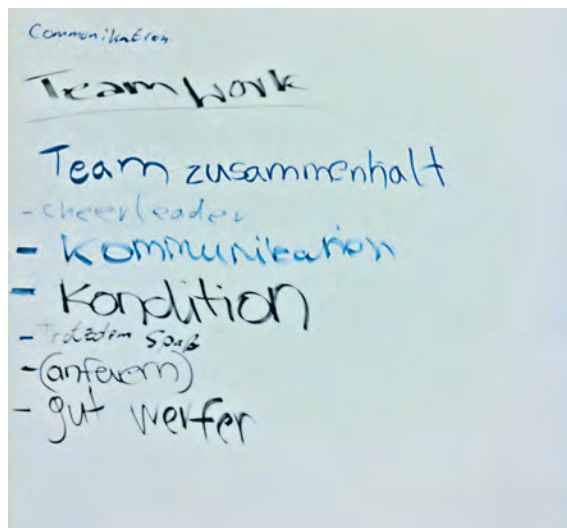 Communikation
Team work
Team zusammenhalt
- cheerleader
- Kommunikation
- Kondition
- Trotzdem Spaß
- (anfeuern)
- gut werfer